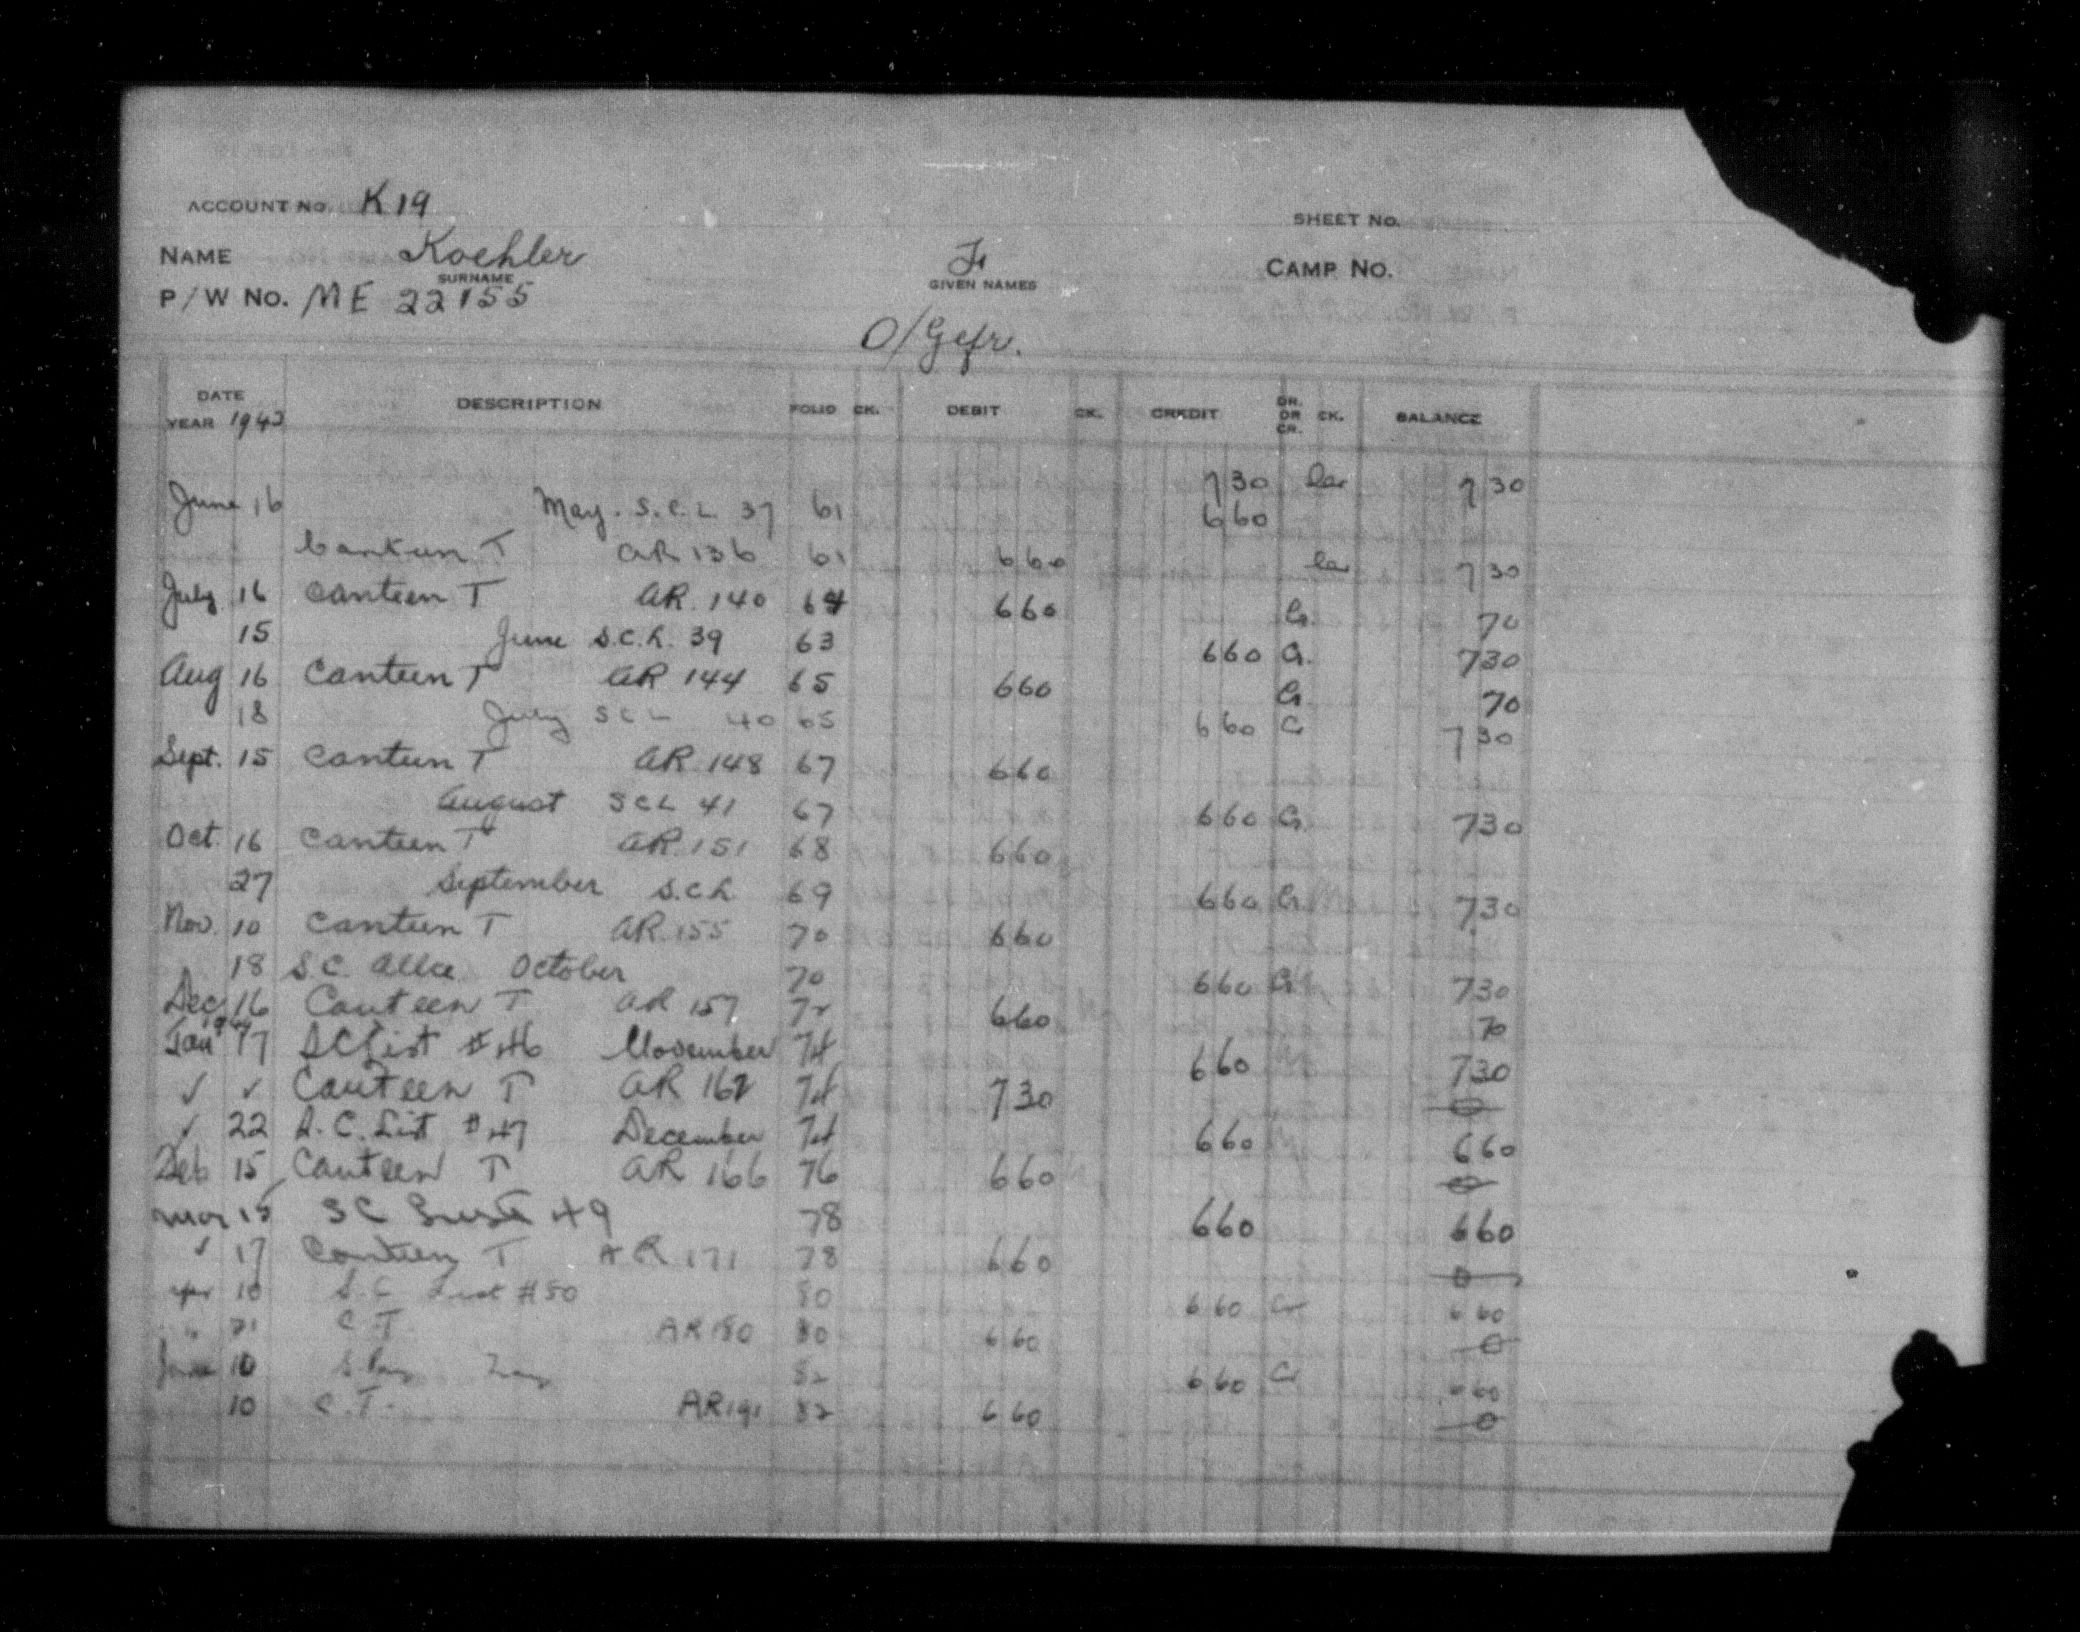 ACCOUNT NO. K19
SHEET NO.
NAME Koehler F. CAMP NO.
SURNAME GIVEN NAMES
P/W No. ME 22155
O/Gefr.
DATE DESCRIPTION FOLIO CK. DEBIT CK. CREDIT DR. OR CR. CK. BALANCE
YEAR 1943
7 30 7 30
June 16 May. S.C.L 37 61 6 60
Canteen T AR 136 61 6 60 7 30
July 16 Canteen T AR. 140 64 6 60 Cr. 70
15 June S.C.L. 39 63 6 60 Cr. 7 30
Aug 16 Canteen T AR 144 65 6 60 Cr. 70
18 July SCL 40 65 6 60 Cr 7 30
Sept. 15 Canteen T AR. 148 67 6 60
August SCL 41 67 6 60 Cr. 7 30
Oct. 16 Canteen T AR. 151 68 6 60
27 September S.C.L. 69 6 60 Cr. 7 30
Nov. 10 Canteen T AR. 155 70 6 60
18 S.C. Allce October 70 6 60 Cr 7 30
Dec 16 Canteen T AR 157 72 6 60 70
Jan 1944 17 SC List #46 November 74 6 60 7 30
✓ ✓ Canteen T AR 162 74 7 30 0
✓ 22 S.C. List #47 December 74 6 60 6 60
Feb 15 Canteen T AR 166 76 6 60 0
Mar 15 SC List 49 78 6 60 6 60
✓ 17 Canteen T AR 171 78 6 60 0
Apr 10 S.C List #50 80 6 60 Cr 6 60
" 21 C.T. AR 180 80 6 60 0
June 10 82 6 60 Cr 6 60
10 C.T. AR 191 82 6 60 0